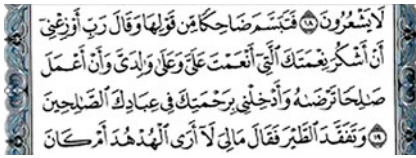 لَا يَشْعُرُونَ ١٨ فَتَبَسَّمَ ضَاحِكًا مِّن قَوْلِهَا وَقَالَ رَبِّ أَوْزِعْنِي
أَنْ أَشْكُرَ نِعْمَتَكَ الَّتِي أَنْعَمْتَ عَلَيَّ وَعَلَىٰ وَالِدَيَّ وَأَنْ أَعْمَلَ
صَالِحًا تَرْضَاهُ وَأَدْخِلْنِي بِرَحْمَتِكَ فِي عِبَادِكَ الصَّالِحِينَ
١٩ وَتَفَقَّدَ الطَّيْرَ فَقَالَ مَا لِيَ لَا أَرَى الْهُدْهُدَ أَمْ كَانَ